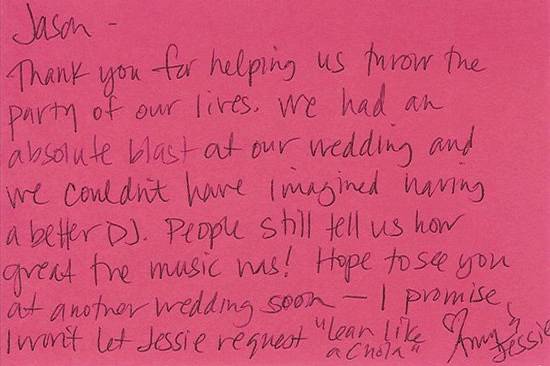 Jason -
Thank you for helping us throw the
party of our lives. We had an
absolute blast at our wedding and
we couldn't have imagined having
a better DJ. People still tell us how
great the music was! Hope to see you
at another wedding soon — I promise
I won't let Jessie request "Lean like a Chola"
♡ Amy & Jessie